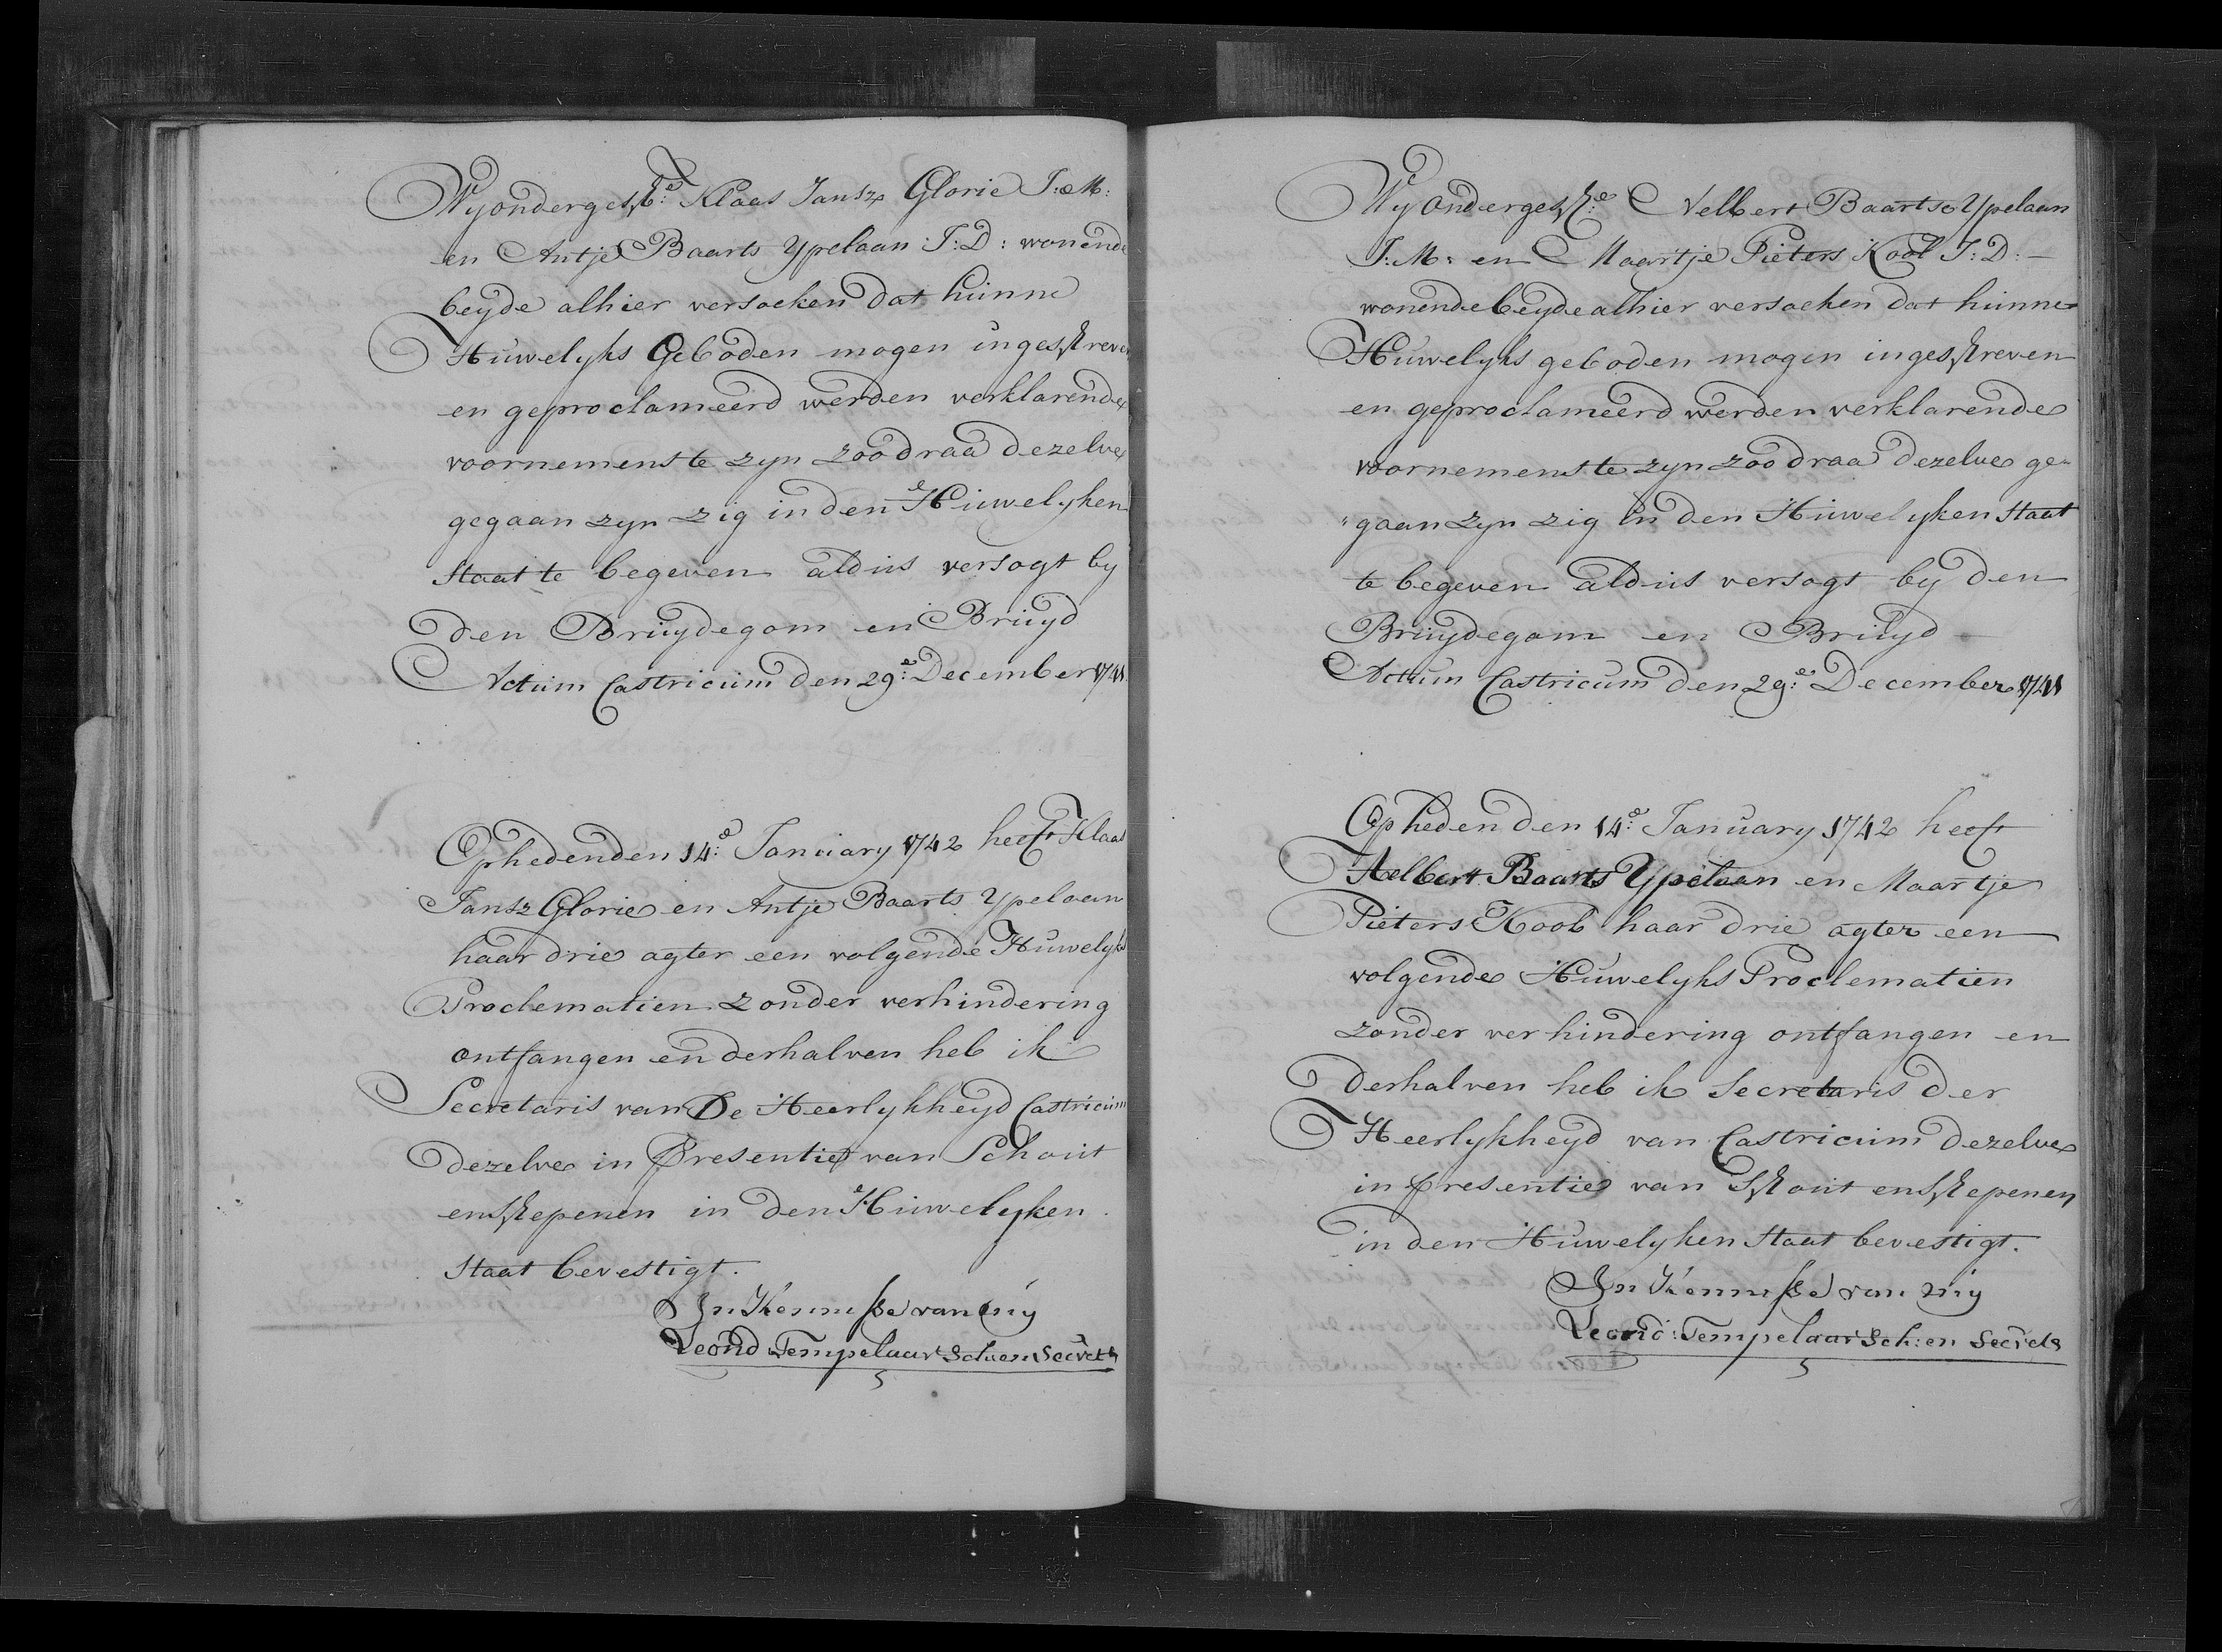 Wy ondergesch:e Klaas Jansz Glorie J:M:
en Antje Baarts Ypelaan J:D: wonende
beyde alhier versoeken dat hunne
Huwelyks Geboden mogen ingeschreven
en geproclameerd werden verklarende
voornemens te zyn zoo draa dezelve
gegaan zyn zig in den Huwelyken
Staat te begeven aldus versogt by
den Bruydegom en Bruyd
Actum Castricum den 29:e December 1741
Op heden den 14:e January 1742 heeft Klaas
Jansz Glorie en Antje Baarts Ypelaan
haar drie agter een volgende Huwelyks
Proclematien zonder verhindering
ontfangen en derhalven heb ik
Secretaris van De Heerlykheyd Castricum
dezelve in presentie van Schout
en Schepenen in den Huwelyken
Staat bevestigt.
In Kennisse van my
Leond Tempelaar Sch: en Secrets
Wy ondergesch:e Aelbert Baartse Ypelaan
J:M: en Maartje Pieters Kool J:D:
wonende beyde alhier versoeken dat hunne
Huwelyks geboden mogen ingeschreven
en geproclameerd werden verklarende
voornemens te zyn zoo draa dezelve ge-
"gaan zyn zig in den Huwelyken Staat
te begeven aldus versogt by den
Bruydegam en Bruyd
Actum Castricum den 29:e December 1741
Op heden den 14:e January 1742 heeft
Aelbert Baarts Ypelaan en Maartje
Pieters Kool haar drie agter een
volgende Huwelyks Proclematien
zonder verhindering ontfangen en
derhalven heb ik Secretaris der
Heerlykheyd van Castricum dezelve
in presentie van Schout en Schepenen
in den Huwelyken Staat bevestigt.
In Kennisse van my
Leond: Tempelaar Sch: en Secrets